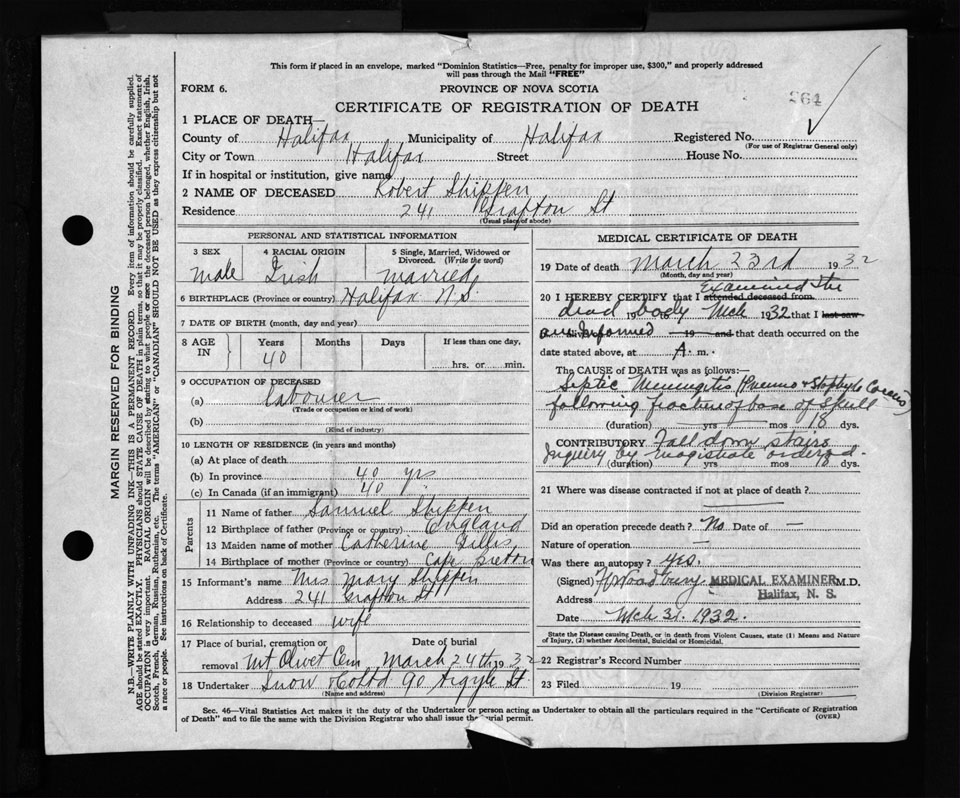 This form if placed in an envelope, marked "Dominion Statistics—Free, penalty for improper use, $300," and properly addressed
will pass through the Mail "FREE"
FORM 6.
PROVINCE OF NOVA SCOTIA
264
CERTIFICATE OF REGISTRATION OF DEATH
1 PLACE OF DEATH—
County of Halifax Municipality of Halifax Registered No.
(For use of Registrar General only)
City or Town Halifax Street House No.
If in hospital or institution, give name
2 NAME OF DECEASED Robert Shippen
Residence 241 Grafton St
(Usual place of abode)
PERSONAL AND STATISTICAL INFORMATION
3 SEX 4 RACIAL ORIGIN 5 Single, Married, Widowed or
Divorced. (Write the word)
male Irish married
6 BIRTHPLACE (Province or country) Halifax N.S.
7 DATE OF BIRTH (month, day and year)
8 AGE IN Years Months Days If less than one day,
40 hrs. or min.
9 OCCUPATION OF DECEASED
(a) Labourer
(Trade or occupation or kind of work)
(b)
(Kind of industry)
10 LENGTH OF RESIDENCE (in years and months)
(a) At place of death
(b) In province 40 yrs
(c) In Canada (if an immigrant) 40
Parents
11 Name of father Samuel Shippen
12 Birthplace of father (Province or country) England
13 Maiden name of mother Catherine Gillis
14 Birthplace of mother (Province or country) Cape Breton
15 Informant's name Mrs Mary Shippen
Address 241 Grafton St
16 Relationship to deceased wife
17 Place of burial, cremation or Date of burial
removal Mt Olivet Cem March 24th 1932
18 Undertaker Snow & Co Ltd 90 Argyle St
(Name and address)
MEDICAL CERTIFICATE OF DEATH
19 Date of death March 23rd 1932
(Month, day and year)
Examined the
20 I HEREBY CERTIFY that I attended deceased from
dead 19 body Mch 1932 that I last saw
am Informed 19 and that death occurred on the
date stated above, at A. m.
The CAUSE OF DEATH was as follows:—
Septic Meningitis (Pneumo & Staphylo Coccus)
following fracture of base of skull
(duration) yrs mos 18 dys.
CONTRIBUTORY Fall down stairs
Inquiry by magistrate ordered.
(duration) yrs mos dys.
21 Where was disease contracted if not at place of death?
Did an operation precede death? No Date of —
Nature of operation —
Was there an autopsy? yes.
(Signed) Woodbury MEDICAL EXAMINER M.D.
Address Halifax, N. S.
Date Mch 31. 1932.
State the Disease causing Death, or in death from Violent Causes, state (1) Means and Nature
of Injury, (2) whether Accidental, Suicidal or Homicidal.
22 Registrar's Record Number
23 Filed 19
(Division Registrar)
Sec. 46—Vital Statistics Act makes it the duty of the Undertaker or person acting as Undertaker to obtain all the particulars required in the "Certificate of Registration
of Death" and to file the same with the Division Registrar who shall issue the burial permit.
(OVER)
MARGIN RESERVED FOR BINDING
N.B.—WRITE PLAINLY WITH UNFADING INK—THIS IS A PERMANENT RECORD. Every item of information should be carefully supplied.
AGE should be stated EXACTLY. PHYSICIANS should STATE CAUSE OF DEATH in plain terms, so that it may be properly classified. Exact statement of
OCCUPATION is very important. RACIAL ORIGIN will be described by stating to what people or race the deceased person belonged, whether English, Irish,
Scotch, French, German, Russian, Ruthenian, etc. The terms "AMERICAN" or "CANADIAN" SHOULD NOT BE USED as they express citizenship but not
a race or people. See instructions on back of Certificate.